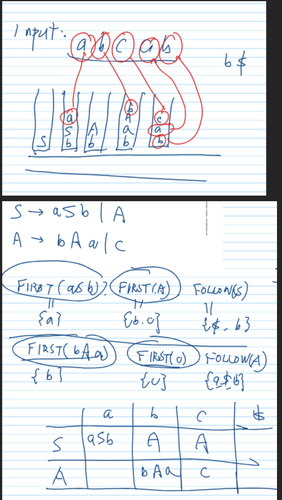 Input: a b c a b
b $
a b c
S A A a
S b b b a b
S → aSb | A
A → bAa | c
FIRST(aSb)? FIRST(A) FOLLOW(S)
= = =
{a} {b.c} {$.b}
FIRST(bAa) FIRST(c) FOLLOW(A)
{b} {c} {a,$b}
a b c $
S aSb A A
A bAa c